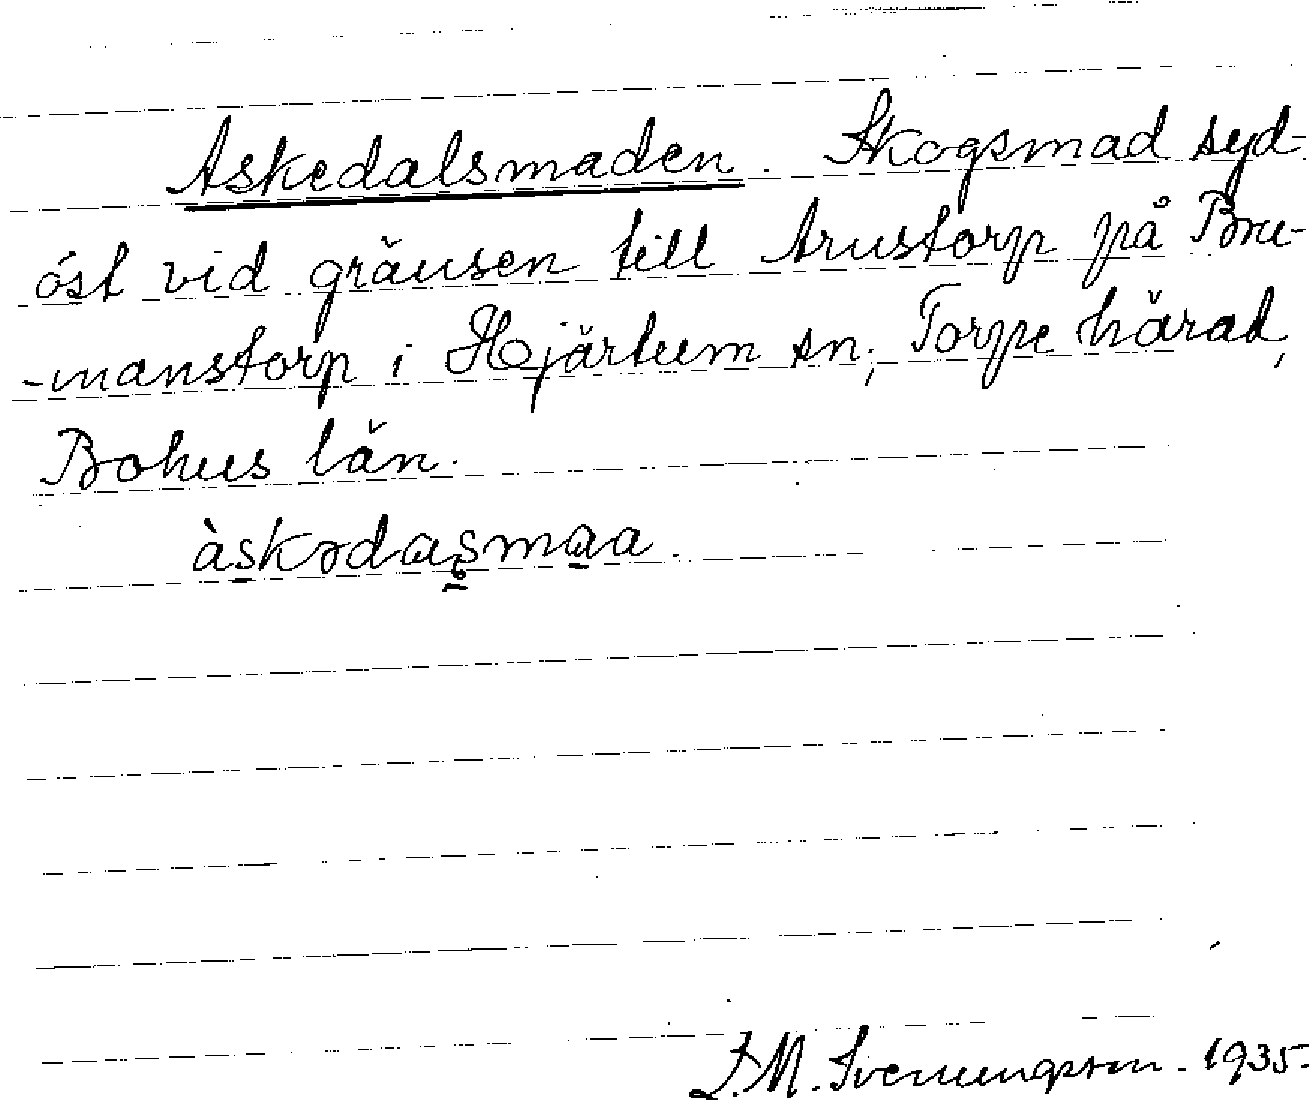 Askedalsmaden. Skogsmad syd-
öst vid gränsen till Arustorp på Bru-
-manstorp i Hjärtum sn, Torpe härad,
Bohus län.
àskədas̥maa.
J.M. Svenungsson. 1935.